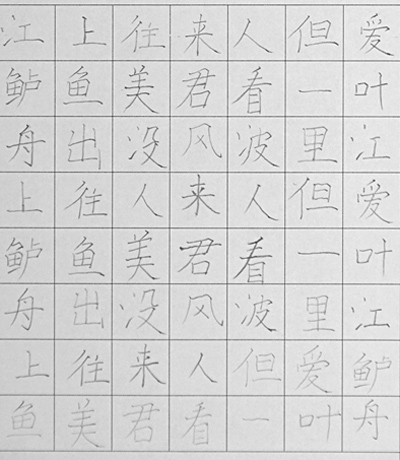 江上往来人但爱
鲈鱼美君看一叶
舟出没风波里江
上往人来人但爱
鲈鱼美君看一叶
舟出没风波里江
上往来人但爱鲈
鱼美君看一叶舟